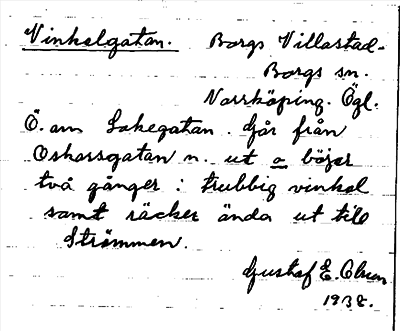 Vinkelgatan. Borgs Villastad-
Borgs sn.
Norrköping. Ögl.
Ö. om Lokegatan. Går från
Oskarsgatan n. ut o böjer
två gånger i trubbig vinkel
samt räcker ända ut till
Strömmen.
Gustaf E. Olsson
1938.